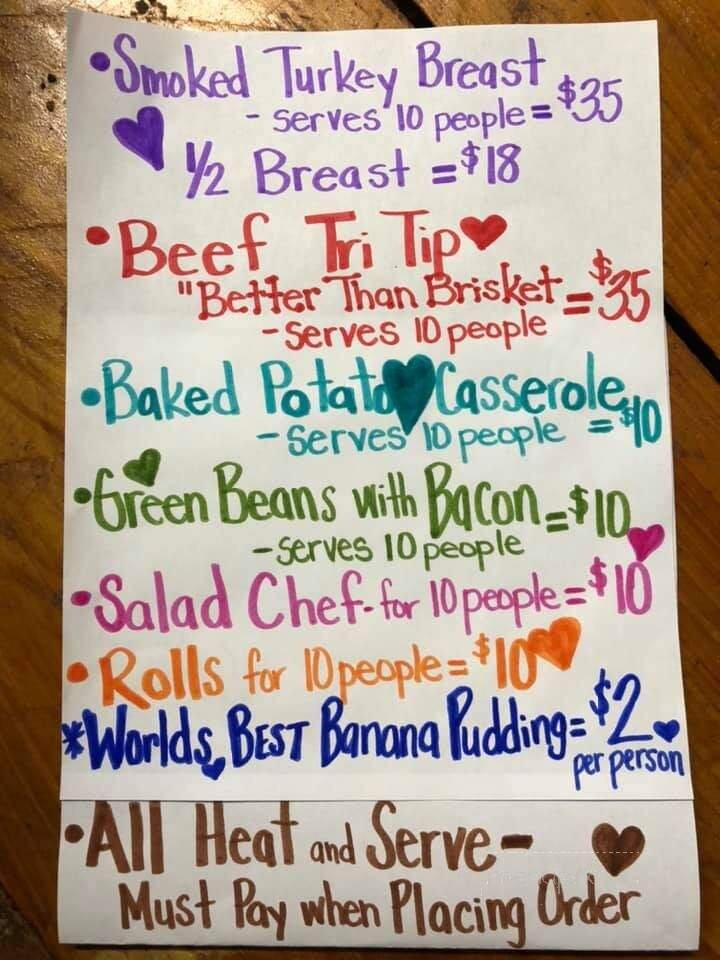 •Smoked Turkey Breast
- serves 10 people = $35
1/2 Breast = $18
•Beef Tri Tip
"Better Than Brisket = $35
- serves 10 people
•Baked Potato Casserole
- serves 10 people = $10
•Green Beans with Bacon = $10
- serves 10 people
•Salad Chef- for 10 people = $10
•Rolls for 10 people = $10
*Worlds BEST Banana Pudding = $2
per person
•All Heat and Serve-
Must Pay when Placing Order